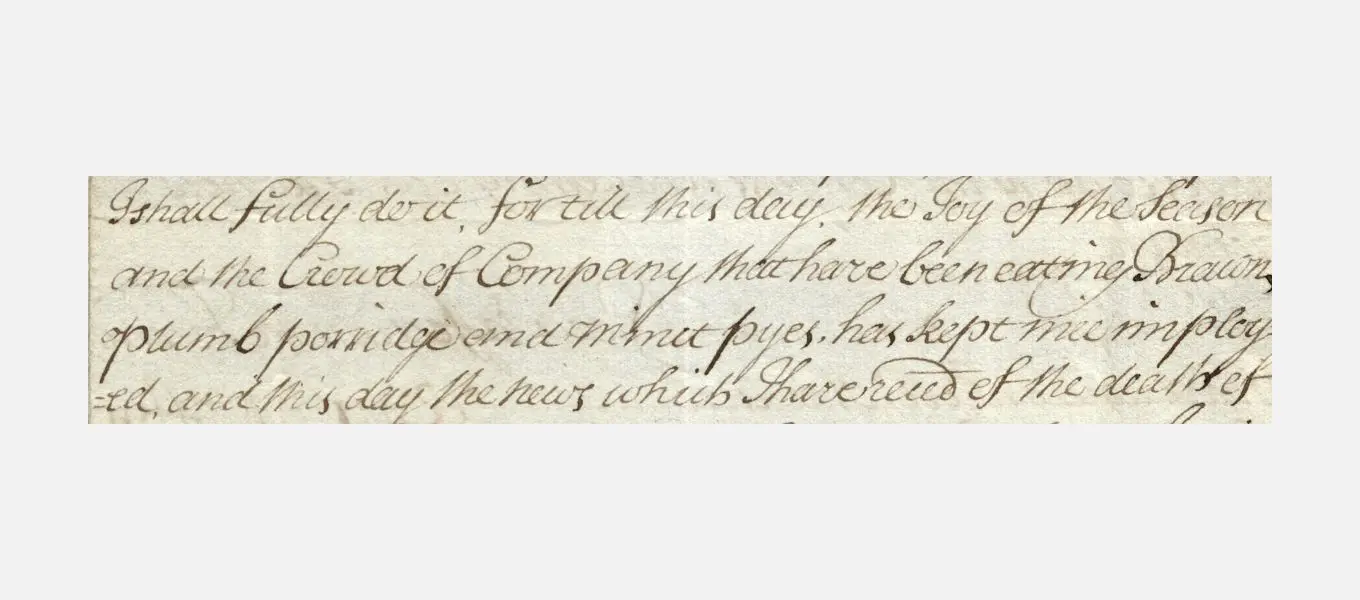 I shall fully do it, for till this day, the Joy of the Season
and the Crowd of Company that have been eating Brawn,
plumb porridge and minct pyes, has kept mee imploy
=ed, and this day the news which I have recd of the death of